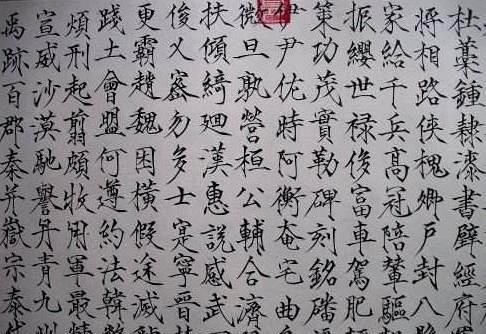 杜藁鍾隸漆書壁經府羅
將相路俠槐卿戶封八
家給千兵高冠陪輦驅
振纓世祿侈富車駕肥
策功茂實勒碑刻銘磻
伊尹佐時阿衡奄宅曲
微旦孰營桓公輔合濟
扶傾綺迴漢惠說感武
俊乂密勿多士寔寧晉
更霸趙魏困橫假途滅
踐土會盟何遵約法韓
煩刑起翦頗牧用軍最精
宣威沙漠馳譽丹青九州
禹跡百郡秦并嶽宗泰岱